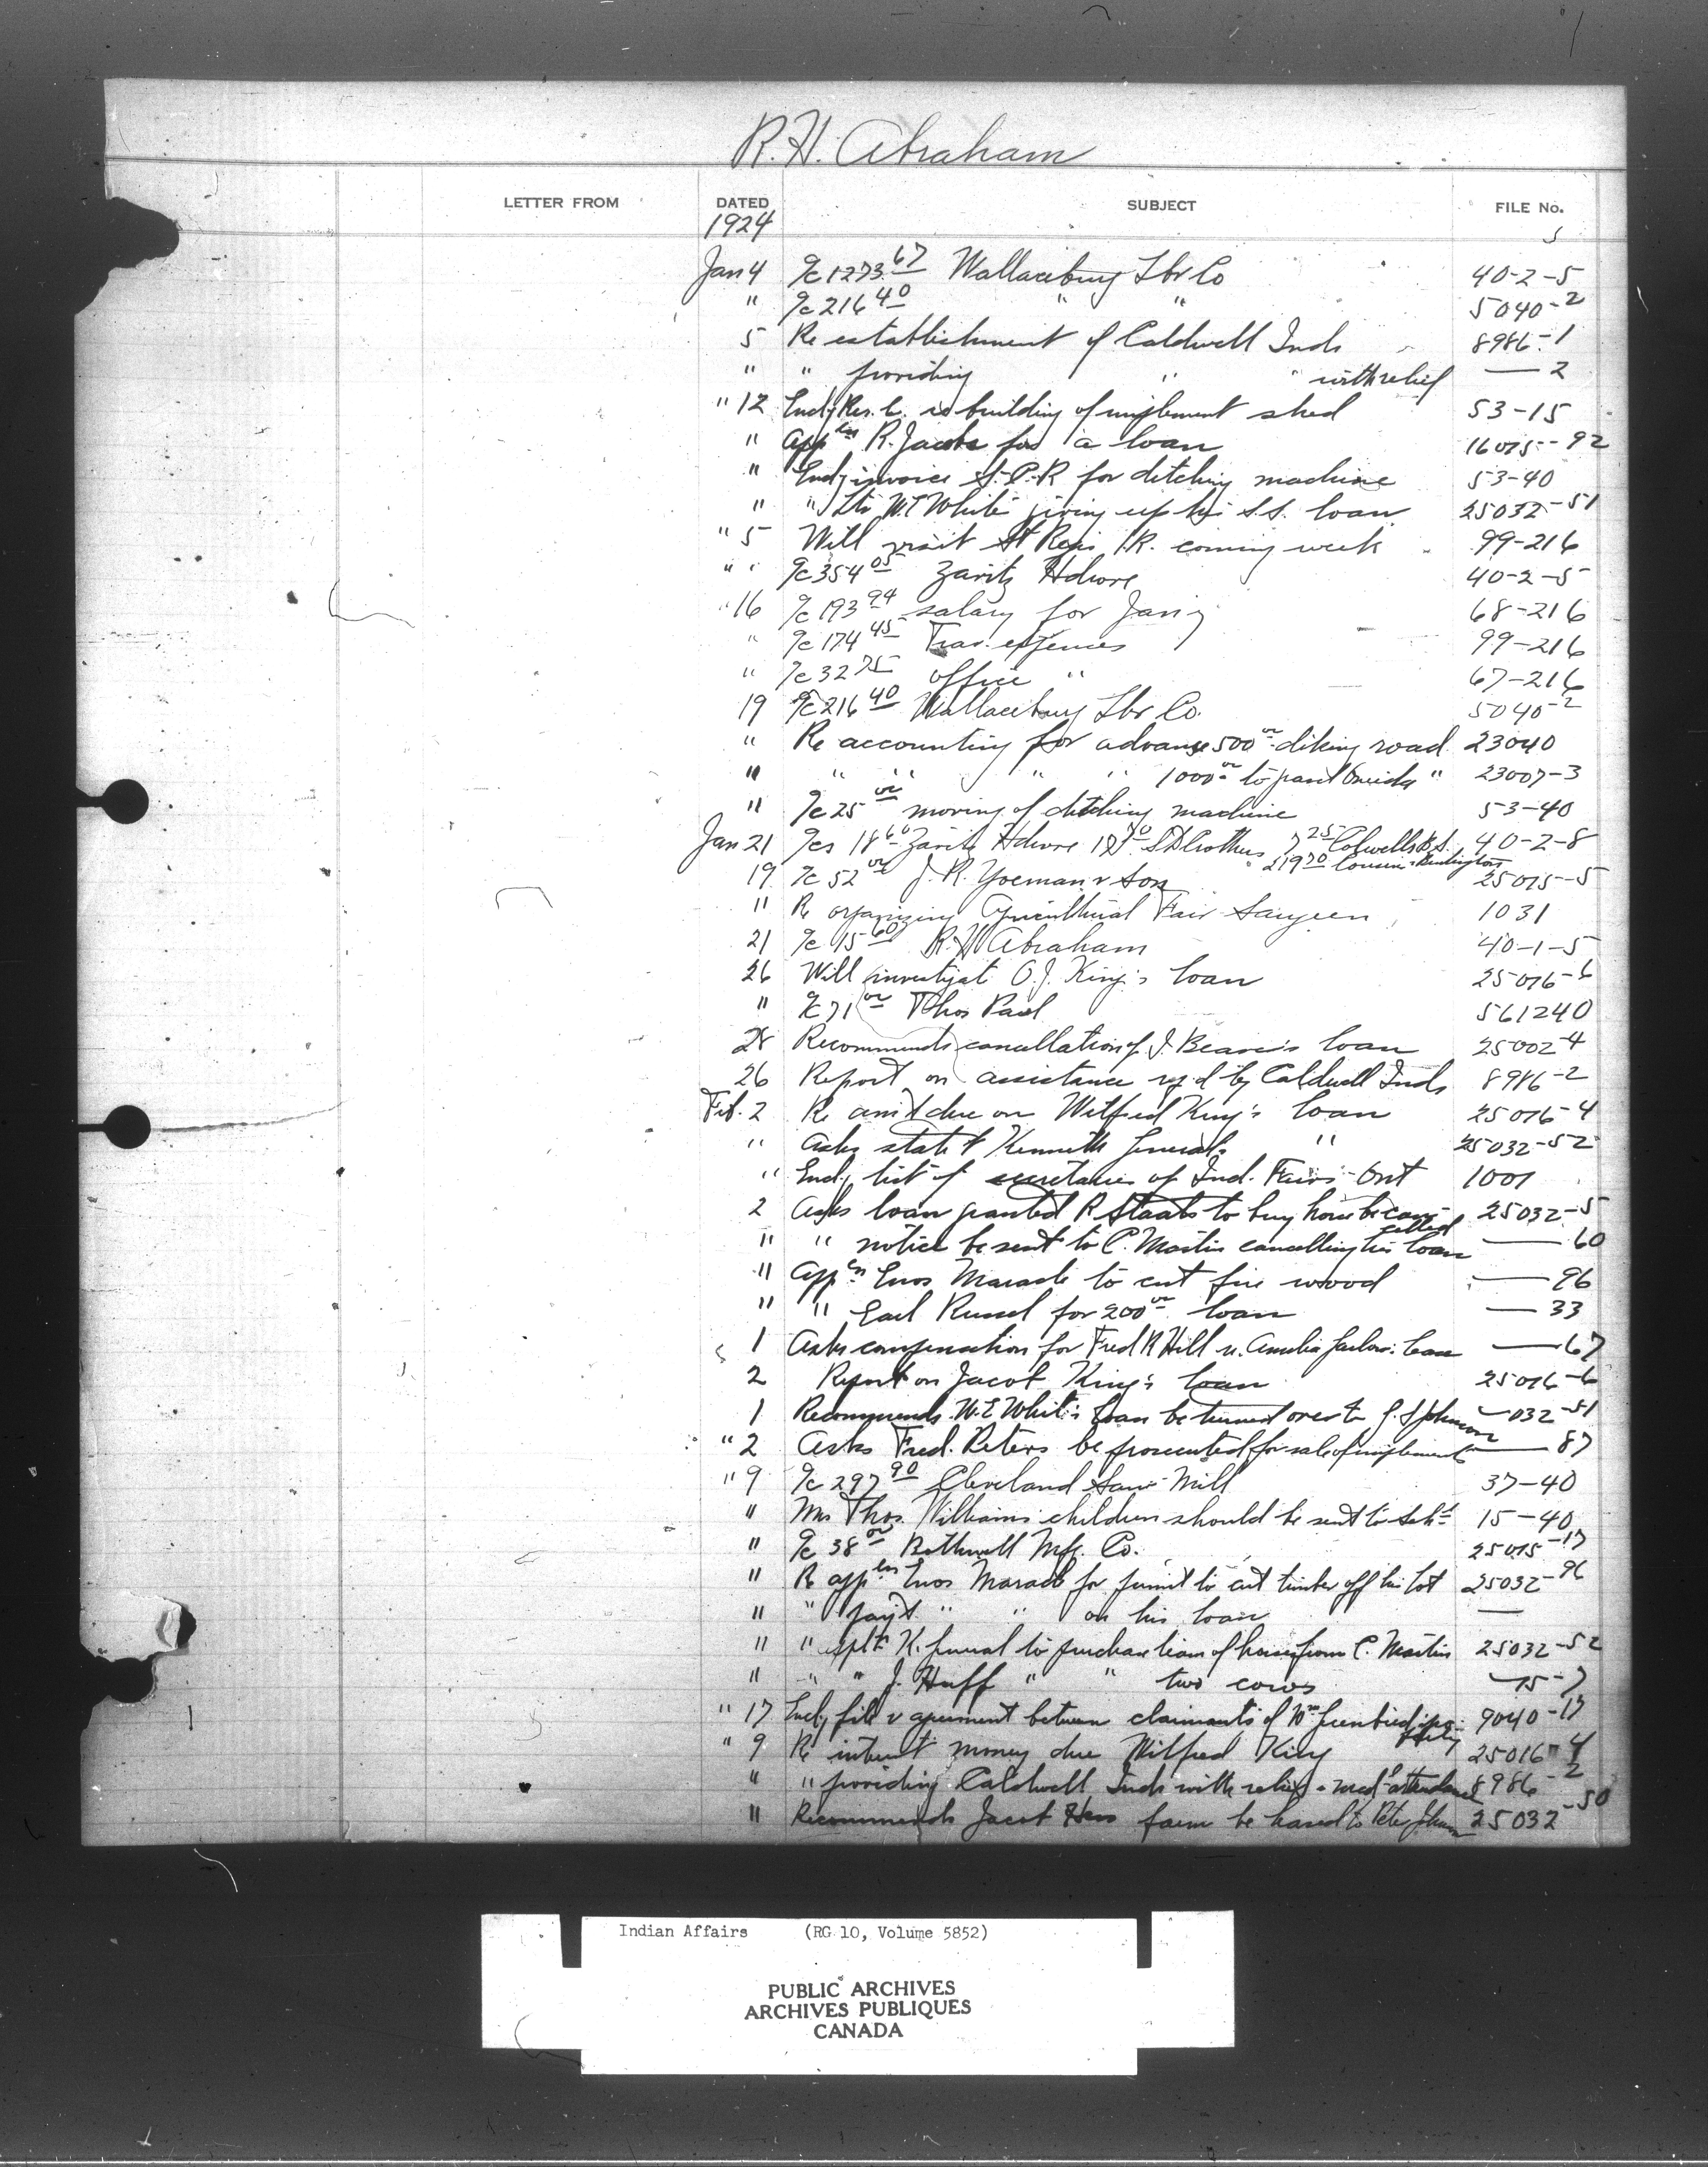 R. H. Abraham
LETTER FROM DATED SUBJECT FILE No.
1924 5
Jan 4 a/c 1273.67 Wallaceburg Lbr Co 40-2-5
" a/c 216 40 " " 5040-2
5 Re establishment of Caldwell Inds 8986-1
" " providing " " with relief — 2
" 12 Encl'g Res. C. re building of implement shed 53-15
" Appln R. Jacobs for a loan 16075-92
" Encl'g invoice C.P.R for ditching machine 53-40
" " Ltr W.E White giving up his S.S. loan 25032-51
" 5 Will visit St Regis I.R. coming week 99-216
" " a/c 354 05 Zaritz Hdwre 40-2-5
" 16 a/c 193 94 salary for Jan'y 68-216
" a/c 174 45 Trav. expenses 99-216
" a/c 32 75 office " 67-216
19 a/c 216 40 Wallaceburg Lbr Co. 5040-2
" Re accounting for advance 500 00 diking road 23040
" " " " " 1000 00 to Oneida " 23007-3
" a/c 25 00 moving of ditching machine 53-40
Jan 21 a/cs 18 60 Zaritz Hdwre 7 25 Colwells B.S. 40-2-8
219 70 Cousins
19 a/c 52 00 J. R. Yoeman & Son 25075-5
" Re organizing Agricultural Fair Saugeen 1031
21 a/c 15 60 R H Abraham 40-1-5
26 Will investigat O.J. King's loan 25076-6
" a/c 71 00 Thos Paul 561240
28 Recommends cancellation of J. Beaver's loan 25002-4
26 Report on assistance rq'd by Caldwell Inds 8986-2
Feb. 2 Re am't due on Wilfred King's loan 25076-4
" Asks stat't Kenneth General's " 25032-52
" Encl'g list of secretaries of Ind. Fairs - Ont 1001
2 Asks loan granted R Staats to buy horse be can- 25032-5
celled
" " notice be sent to C. Martin cancelling his loan — 60
" Appln Enos Maracle to cut fire wood — 96
" " Earl Russel for 200 00 loan — 33
1 Asks compensation for Fred R Hill re. Amelia loan — 67
2 Report on Jacob King's loan 25076-6
1 Recommends W.E White's loan be turned over to Johnson — 032-51
" 2 Asks Fred. Peters be prosecuted for sale of implements — 87
" 9 a/c 297 90 Cleveland Saw Mill 37-40
" Mrs Thos. Williams children should be sent to Schl 15-40
" a/c 38 00 Bothwell Mfg. Co. 25075-17
" Re appln Enos Maracle for permit to cut timber off his lot 25032-96
" " pay't " " on his loan —
" " appln K. General to purchase team of horses from C. Martin 25032-52
" " " J. Huff " " two cows — 75-7
" 17 Encl'g file & agreement between claimants of Wm Greenbird 9040-17
" 9 Re interest money due Wilfred King 25016-4
" " providing Caldwell Inds with relief & med'l attendance 8986-2
" Recommends Jacob Hess farm be leased to Peter Johnson 25032-50
Indian Affairs (RG 10, Volume 5852)
PUBLIC ARCHIVES
ARCHIVES PUBLIQUES
CANADA